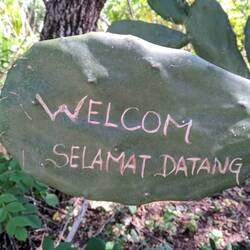 WELCOM
SELAMAT DATANG